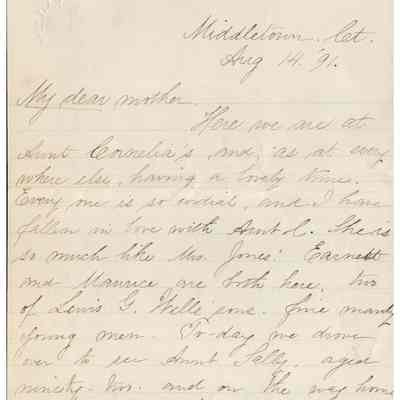 Middletown. Ct.
Aug 14. '91.
My dear mother.
Here we are at
Aunt Cornelia's and, as at every
where else, having a lovely time.
Every one is so cordial, and I have
fallen in love with Aunt C. She is
so much like Mrs. Jones! Earnest
and Maurice are both here, two
of Lewis G. Wells' sons. fine manly
young men. To-day we drove
over to see Aunt Sally, aged
ninety-two. and on the way home